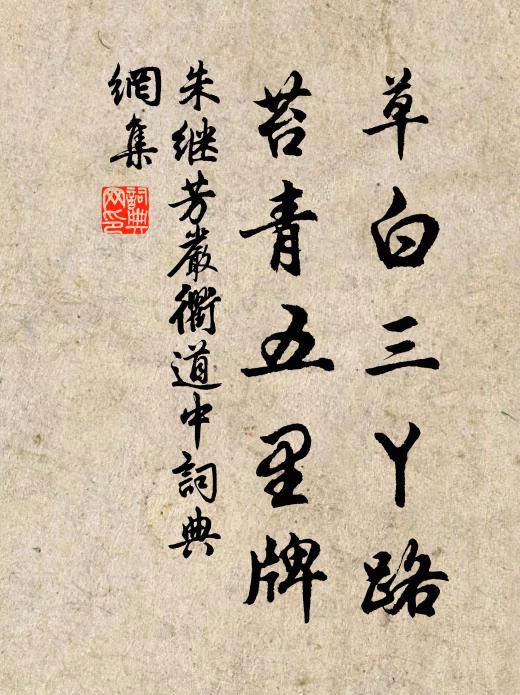 草白三丫路
苔青五里牌
朱继芳嚴衢道中詞典
網集
詞典
网印